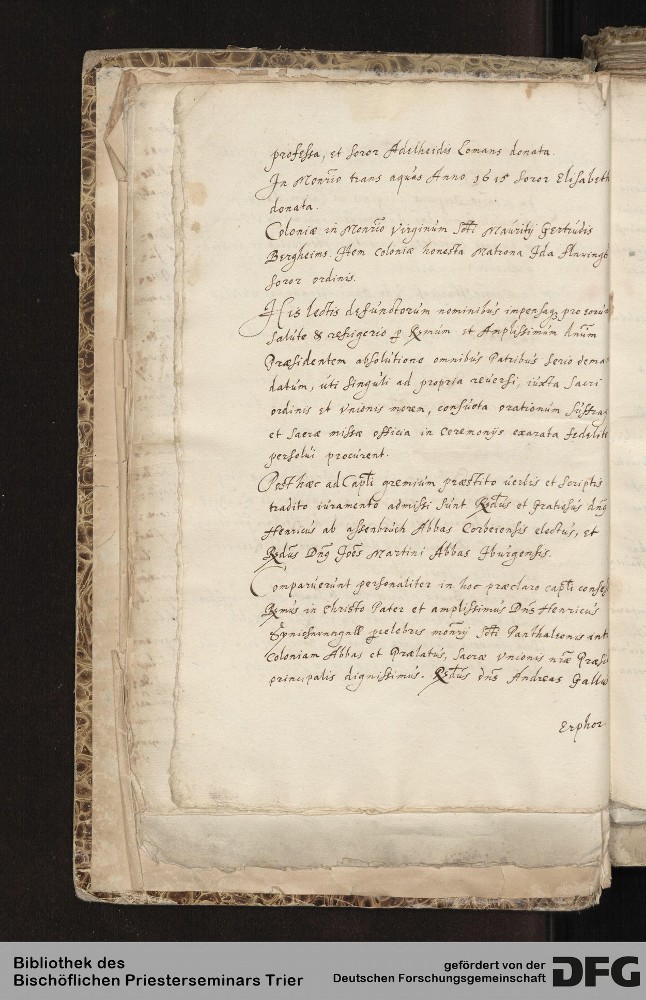 professa, et Soror Adelheidis Lomans donata.
In Monrio trans aquas Anno 1615 Soror Elisabeth
donata.
Coloniæ in Monrio Virginum Sti Mauritij Gertrudis
Bergheims. Item Coloniæ honesta Matrona Ida
Soror ordinis.
His lectis defunctorum nominibus impensaq pro eorum
salute & refrigerio p Rmum et Amplissimum dnum
Præsidentem absolutione omnibus Patribus serio dema-
datum, uti singuli ad propria reuersi, iuxta Sacri
ordinis et vnionis morem, consueta orationum suffra
et Sacræ missæ officia in Ceremonijs exarata fedelit
persolui procurent.
Post hæc ad Capli gremium præstito uerbis et scriptis
tradito iuramento admissi sunt Rdus et Gratiosus dns
Henricus ab assenbruch Abbas Corbeiensis electus, et
Rdus Dns Joes Martini Abbas Iburgensis.
Comparuerunt personaliter in hoc præclaro capli conses
Rmus in Christo Pater et amplissimus Dns Henricus
percelebris monrij Sti Panthaleonis
Coloniam Abbas et Prælatus, Sacræ vnionis nræ Præsi
principalis dignissimus. Rdus dns Andreas Gallus
Erphor
Bibliothek des
Bischöflichen Priesterseminars Trier
gefördert von der
Deutschen Forschungsgemeinschaft
DFG